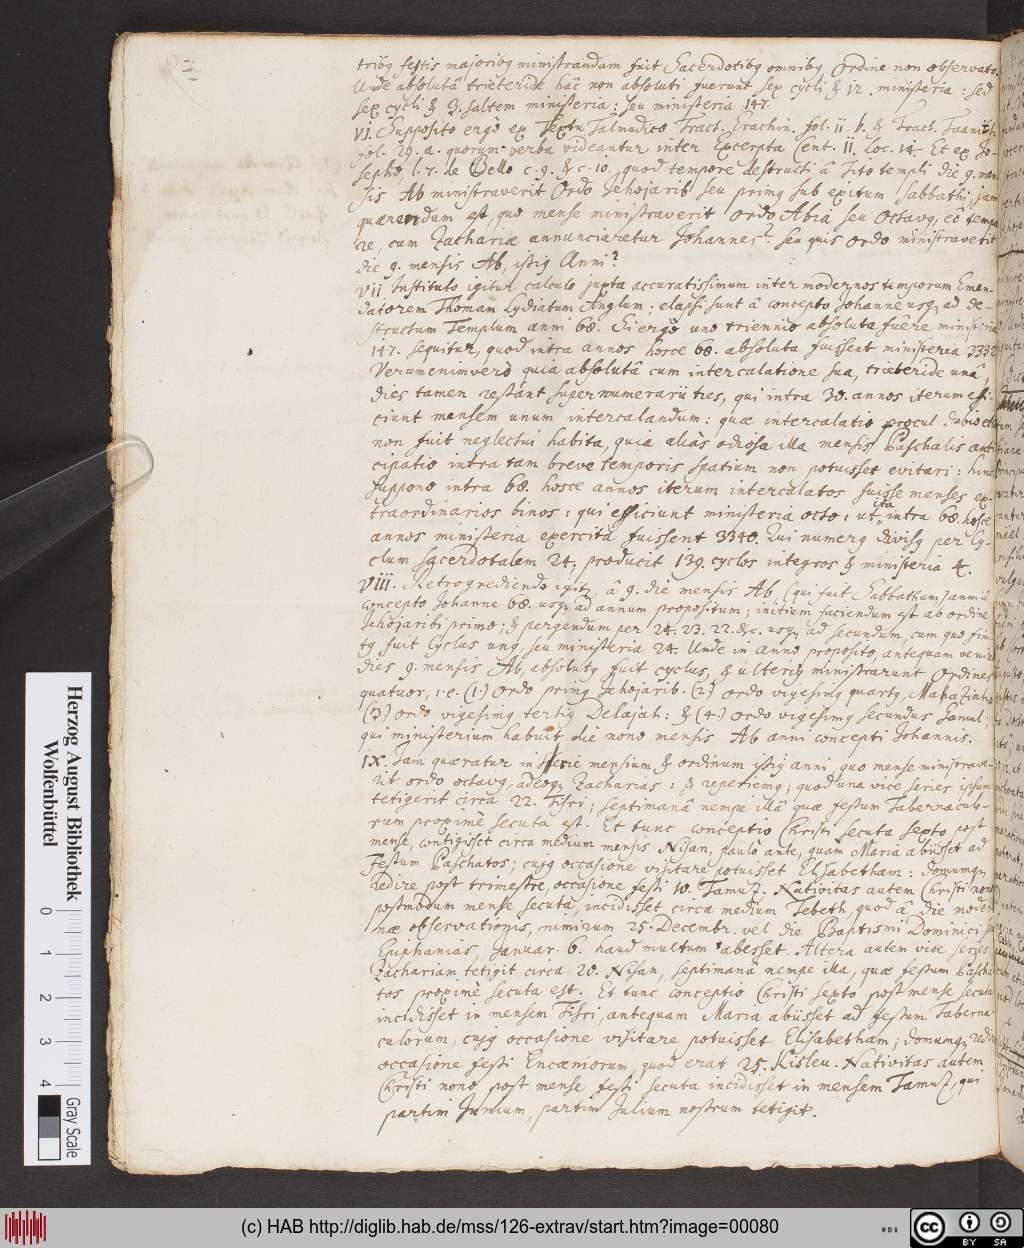 tribq festis majoribq ministrandum fuit Sacerdotibq omnibq Ordine non observato.
Unde absolutâ trieteride hâc non absoluti fuerunt sex cycli & 12. ministeria: sed
sex cycli & 3. saltem ministeria: seu ministeria 147.
VI. Supposito ergò ex Textu Talmudico Tract. Erachin. fol. 11. b. & Tract. Taanith
fol. 29. a. quorum verba videantur inter Excerpta Cent. 11. Loc. 14. Et ex Jo-
sepho l. 7. de Bello c. 9. & c. 10. quod tempore destructi â Tito templi die 9. men-
sis Ab ministraverit Ordo Jehojarib seu primq sub exitum Sabbathi; jam
quærendum est, quo mense ministraverit ordo Abia seu Octavq, eô tempo
re, cum Zachariæ annunciaretur Johannes? seu quis ordo ministraverit
die 9. mensis Ab, istiq Anni?
VII Instituto igitur calculo juxta accuratissimum inter modernos temporum Emen-
datorem Thomam Lydiatum Anglum; elapsi sunt â concepto Johanne usq ad de-
structum Templum anni 68. Si ergò uno triennio absoluta fuêre ministeria
147. sequitur, quod intra annos hosce 68. absoluta fuissent ministeria 3332
Verumenimverò quia absolutâ cum intercalatione sua, trieteride unâ,
dies tamen restant supernumerarii tres, qui intra 30. annos iterum effi-
ciunt mensem unum intercalandum: quæ intercalatio procul dubio etia
non fuit neglectui habita, quia aliàs odiosa illa mensis Paschalis anti
cipatio intra tam breve temporis spatium non potuisset evitari: hinc
suppono intra 68. hosce annos iterum intercalatos fuisse menses ex-
traordinarios binos: qui efficiunt ministeria octo: ut ita intra 68. hosce
annos ministeria exercita fuissent 3340. Qui numerq divisq per Cy-
clum sacerdotalem 24. producit 139. cyclos integros & ministeria 4.
VIII. Retrogrediendo igitr â 9. die mensis Ab (qui fuit Sabbathum) anni â
concepto Johanne 68. usq ad annum propositum; initium faciendum est ab ordine
Jehojaribi primo; & pergendum per 24. 23. 22. &c. usq ad secundum, cum quo fini
tq fuit Cyclus unq seu ministeria 24. Unde in anno proposito, antequam veniret
dies 9. mensis Ab, absolutq fuit cyclus, & ulteriq ministrarunt Ordines
quatuor, i. e. (1.) Ordo primq Jehojarib. (2) ordo vigesimq quartq, Mahaziahu
(3) ordo vigesimq tertiq Delajah: & (4.) ordo vigesimq secundus Gamul;
qui ministerium habuit die nono mensis Ab anni concepti Johannis.
IX. Jam quæratur in serie mensium & ordinum istiq anni quo mense ministrave-
rit ordo octavq, adeoq Zacharias: & reperiemq; quod una vice series ipsum
tetigerit circa 22. Tisri; septimanâ nempe illâ quæ festum Tabernaculo-
rum proximè secuta est. Et tunc conceptio Christi secuta sexto post
mense, contigisset circa medium mensis Nisan, paulò ante, quàm Maria abiisset ad
Festum Paschatos; cujq occasione visitare potuisset Elisabetham: domumq
redire post trimestre, occasione festi 10. Tamuz. Nativitas autem Christi nono
postmodum mense secuta, incidisset circa medium Tebeth, quod â die moder
næ observationis, nimirum 25. Decembr. vel die Baptismi Dominici seu
Epiphanias, Januar. 6. haud multum abesset. Altera autem vice series
Zachariam tetigit circa 20. Nisan, septimanâ nempe illa, quæ festum Pascha
tos proximè secuta est. Et tunc conceptio Christi sexto post mense secuta
incidisset in mensem Tisri, antequam Maria abiisset ad festum Taberna-
culorum, cujq occasione visitare potuisset Elisabetham; domumq redire
occasione festi Encæniorum, quod erat 25. Kisleu. Nativitas autem
Christi nono post mense festi secuta incidisset in mensem Tamuz, qui
partim Junium, partim Julium nostrum tetigit.
Herzog August Bibliothek
Wolfenbüttel
0 1 2 3 4 Gray Scale
(c) HAB http://diglib.hab.de/mss/126-extrav/start.htm?image=00080
cc BY SA